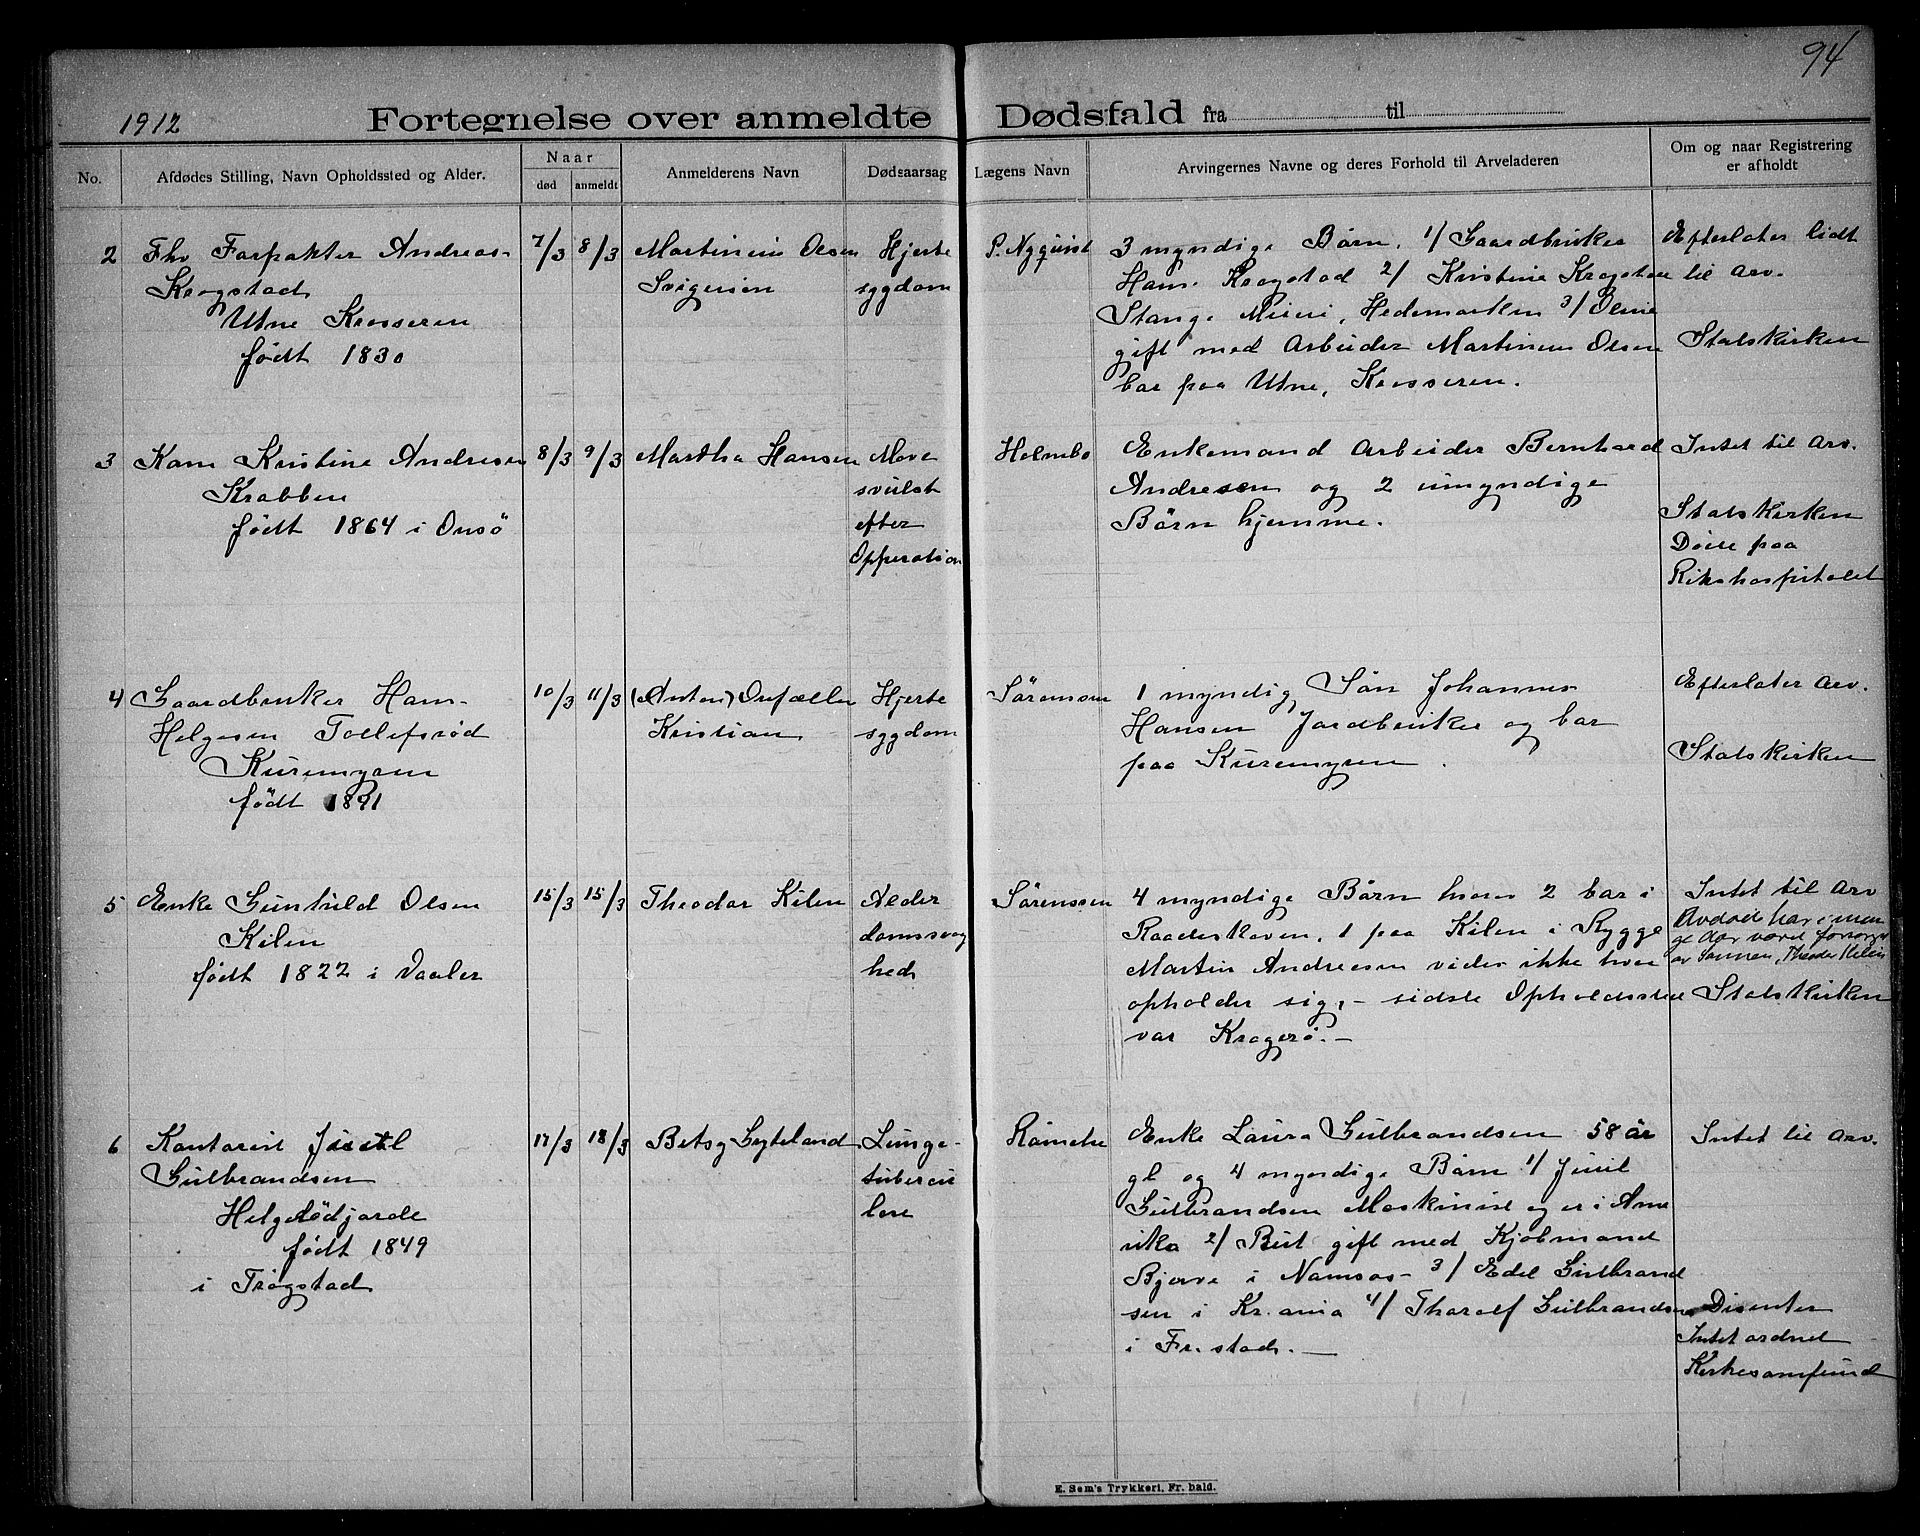 94
1912 Fortegnelse over anmeldte Dødsfald fra til
No.
Afdødes Stilling, Navn Opholdssted og Alder.
Naar
død
anmeldt
Anmelderens Navn
Dødsaarsag
Lægens Navn
Arvingernes Navne og deres Forhold til Arveladeren
Om og naar Registrering
er afholdt
2
Fhv Forpakter Andreas
Krogstad
Utne Krosseren
født 1830
7/3
8/3
Martinius Olsen
Svigersøn
Hjerte
sygdom
P. Nyquist
3 myndige Børn. 1/ Gaardbruker
Hans Krogstad 2/ Kristine Krogstad
Stange Mieri, Hedemarken 3/ Oline
gift med Arbeider Martinius Olsen
bor paa Utne, Krosseren.
Efterlater lidt
til Arv.
Statskirken
3
Kone Kristine Andresen
Krabben
født 1864 i Onsö
8/3
9/3
Martha Hansen
Mave
svulst
efter
Opperation
Holmbo
Enkemand Arbeider Bernhard
Andresen og 2 umyndige
Børn hjemme.
Intet til Arv.
Statskirken
Døde paa
Rikshospitalet
4
Gaardbruker Hans
Helgesen Tollefsrød
Kuremyren
født 1821
10/3
11/3
(Anton)
Kristian
Hjerte
sygdom
Sørensen
1 myndig Søn Johannes
Hansen Jordbruker og bor
paa Kuremyren.
Efterlater Arv.
Statskirken
5
Enke Gunhild Olsen
Kilen
født 1822 i Vaaler
15/3
15/3
Theodor Kilen
Alder
domssvag
hed
Sørenssen
4 myndige Børn hvoraf 2 bor i
Raadeskoven, 1 paa Kilen i Rygge
Martin Andreesen vides ikke hvor
opholder sig, - sidste Opholdssted
var Kragerø. -
Intet til Arv
Avdød har i man
ge Aar været forsørget
av Sønnen, Theodor Kilen
Statskirken
6
Kontorist Juul
Gulbrandsen
Helgerødjorde
født 1849
i Trøgstad
17/3
18/3
Betsy Lyteland
Lunge-
tubercu
lose
Enke Laura Gulbrandsen 58 år
gl og 4 myndige Børn 1/ Juul
Gulbrandsen Maskinist og er i Ame
rika 2/ Rut gift med Kjøbmand
Bjerve i Namsos - 3/ Edel Gulbrand
sen i Kr.ania 4/ Tharalf Gulbrandsen
i Fr.stad. -
Intet til Arv.
Disenter
Intet ordnet
Kirkesamfund
E. Sem's Trykkeri, Fr. hald.